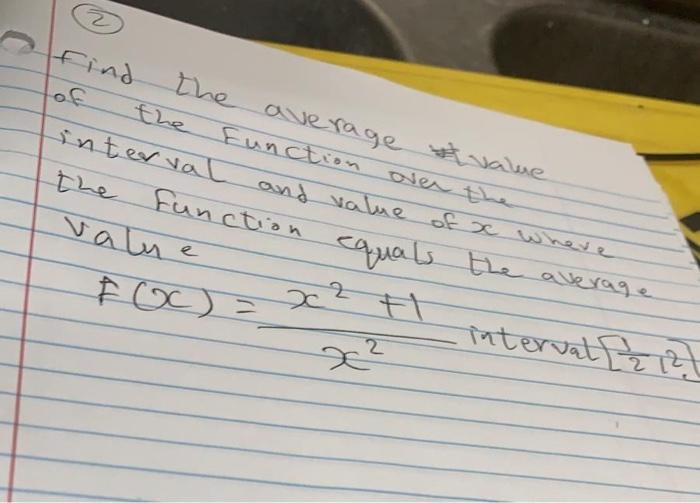 ②
Find the average value
of the Function over the
interval and value of x where
the Function equals the average
value
F(x) = x² + 1 / x² interval [1/2, 2]